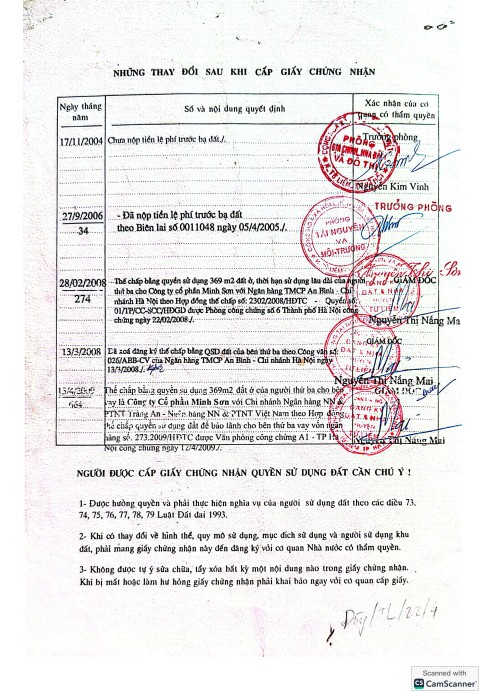 NHỮNG THAY ĐỔI SAU KHI CẤP GIẤY CHỨNG NHẬN
Ngày tháng năm
Số và nội dung quyết định
Xác nhận của cơ quan có thẩm quyền
17/11/2004
Chưa nộp tiền lệ phí trước bạ đất./.
Trưởng phòng
PHÒNG
ĐỊA CHÍNH, NHÀ ĐẤT
VÀ ĐÔ THỊ
Nguyễn Kim Vinh
27/9/2006
34
- Đã nộp tiền lệ phí trước bạ đất
theo Biên lai số 0011048 ngày 05/4/2005./.
TRƯỞNG PHÒNG
PHÒNG
TÀI NGUYÊN
VÀ
MÔI TRƯỜNG
28/02/2008
274
Thế chấp bằng quyền sử dụng 369 m2 đất ở, thời hạn sử dụng lâu dài của người
thứ ba cho Công ty cổ phần Minh Sơn với Ngân hàng TMCP An Bình - Chi
nhánh Hà Nội theo Hợp đồng thế chấp số: 2302/HĐTC - Quyển số:
01/TP/CC-SCC/HĐGD được Phòng công chứng số 6 Thành phố Hà Nội công
chứng ngày 22/02/2008./.
GIÁM ĐỐC
Nguyễn Thị Nắng Ma
13/3/2008
Đã xoá đăng ký thế chấp bằng QSD đất của bên thứ ba theo Công văn số:
026/ABB-CV của Ngân hàng TMCP An Bình - Chi nhánh Hà Nội ngày
13/3/2008./.
GIÁM ĐỐC
Nguyễn Thị Nắng Mai
13/4/2009
664
Thế chấp bằng quyền sử dụng 369m2 đất ở của người thứ ba cho bên
vay là Công ty Cổ phần Minh Sơn với Chi nhánh Ngân hàng NN &
PTNT Tràng An - Ngân hàng NN & PTNT Việt Nam theo Hợp đồng
thế chấp quyền sử dụng đất để bảo lãnh cho bên thứ ba vay vốn ngân
hàng số. 273.2009/HĐTC được Văn phòng công chứng A1 - TP Hà
Nội công chứng ngày 12/4/2009./.
GIÁM ĐỐC
Nguyễn Thị Nắng Mai
NGƯỜI ĐƯỢC CẤP GIẤY CHỨNG NHẬN QUYỀN SỬ DỤNG ĐẤT CẦN CHÚ Ý !
1- Được hưởng quyền và phải thực hiện nghĩa vụ của người sử dụng đất theo các điều 73,
74, 75, 76, 77, 78, 79 Luật Đất đai 1993.
2- Khi có thay đổi về hình thể, quy mô sử dụng, mục đích sử dụng và người sử dụng khu
đất, phải mang giấy chứng nhận này đến đăng ký với cơ quan Nhà nước có thẩm quyền.
3- Không được tự ý sửa chữa, tẩy xóa bất kỳ một nội dung nào trong giấy chứng nhận.
Khi bị mất hoặc làm hư hỏng giấy chứng nhận phải khai báo ngay với cơ quan cấp giấy.
Scanned with
CS CamScanner